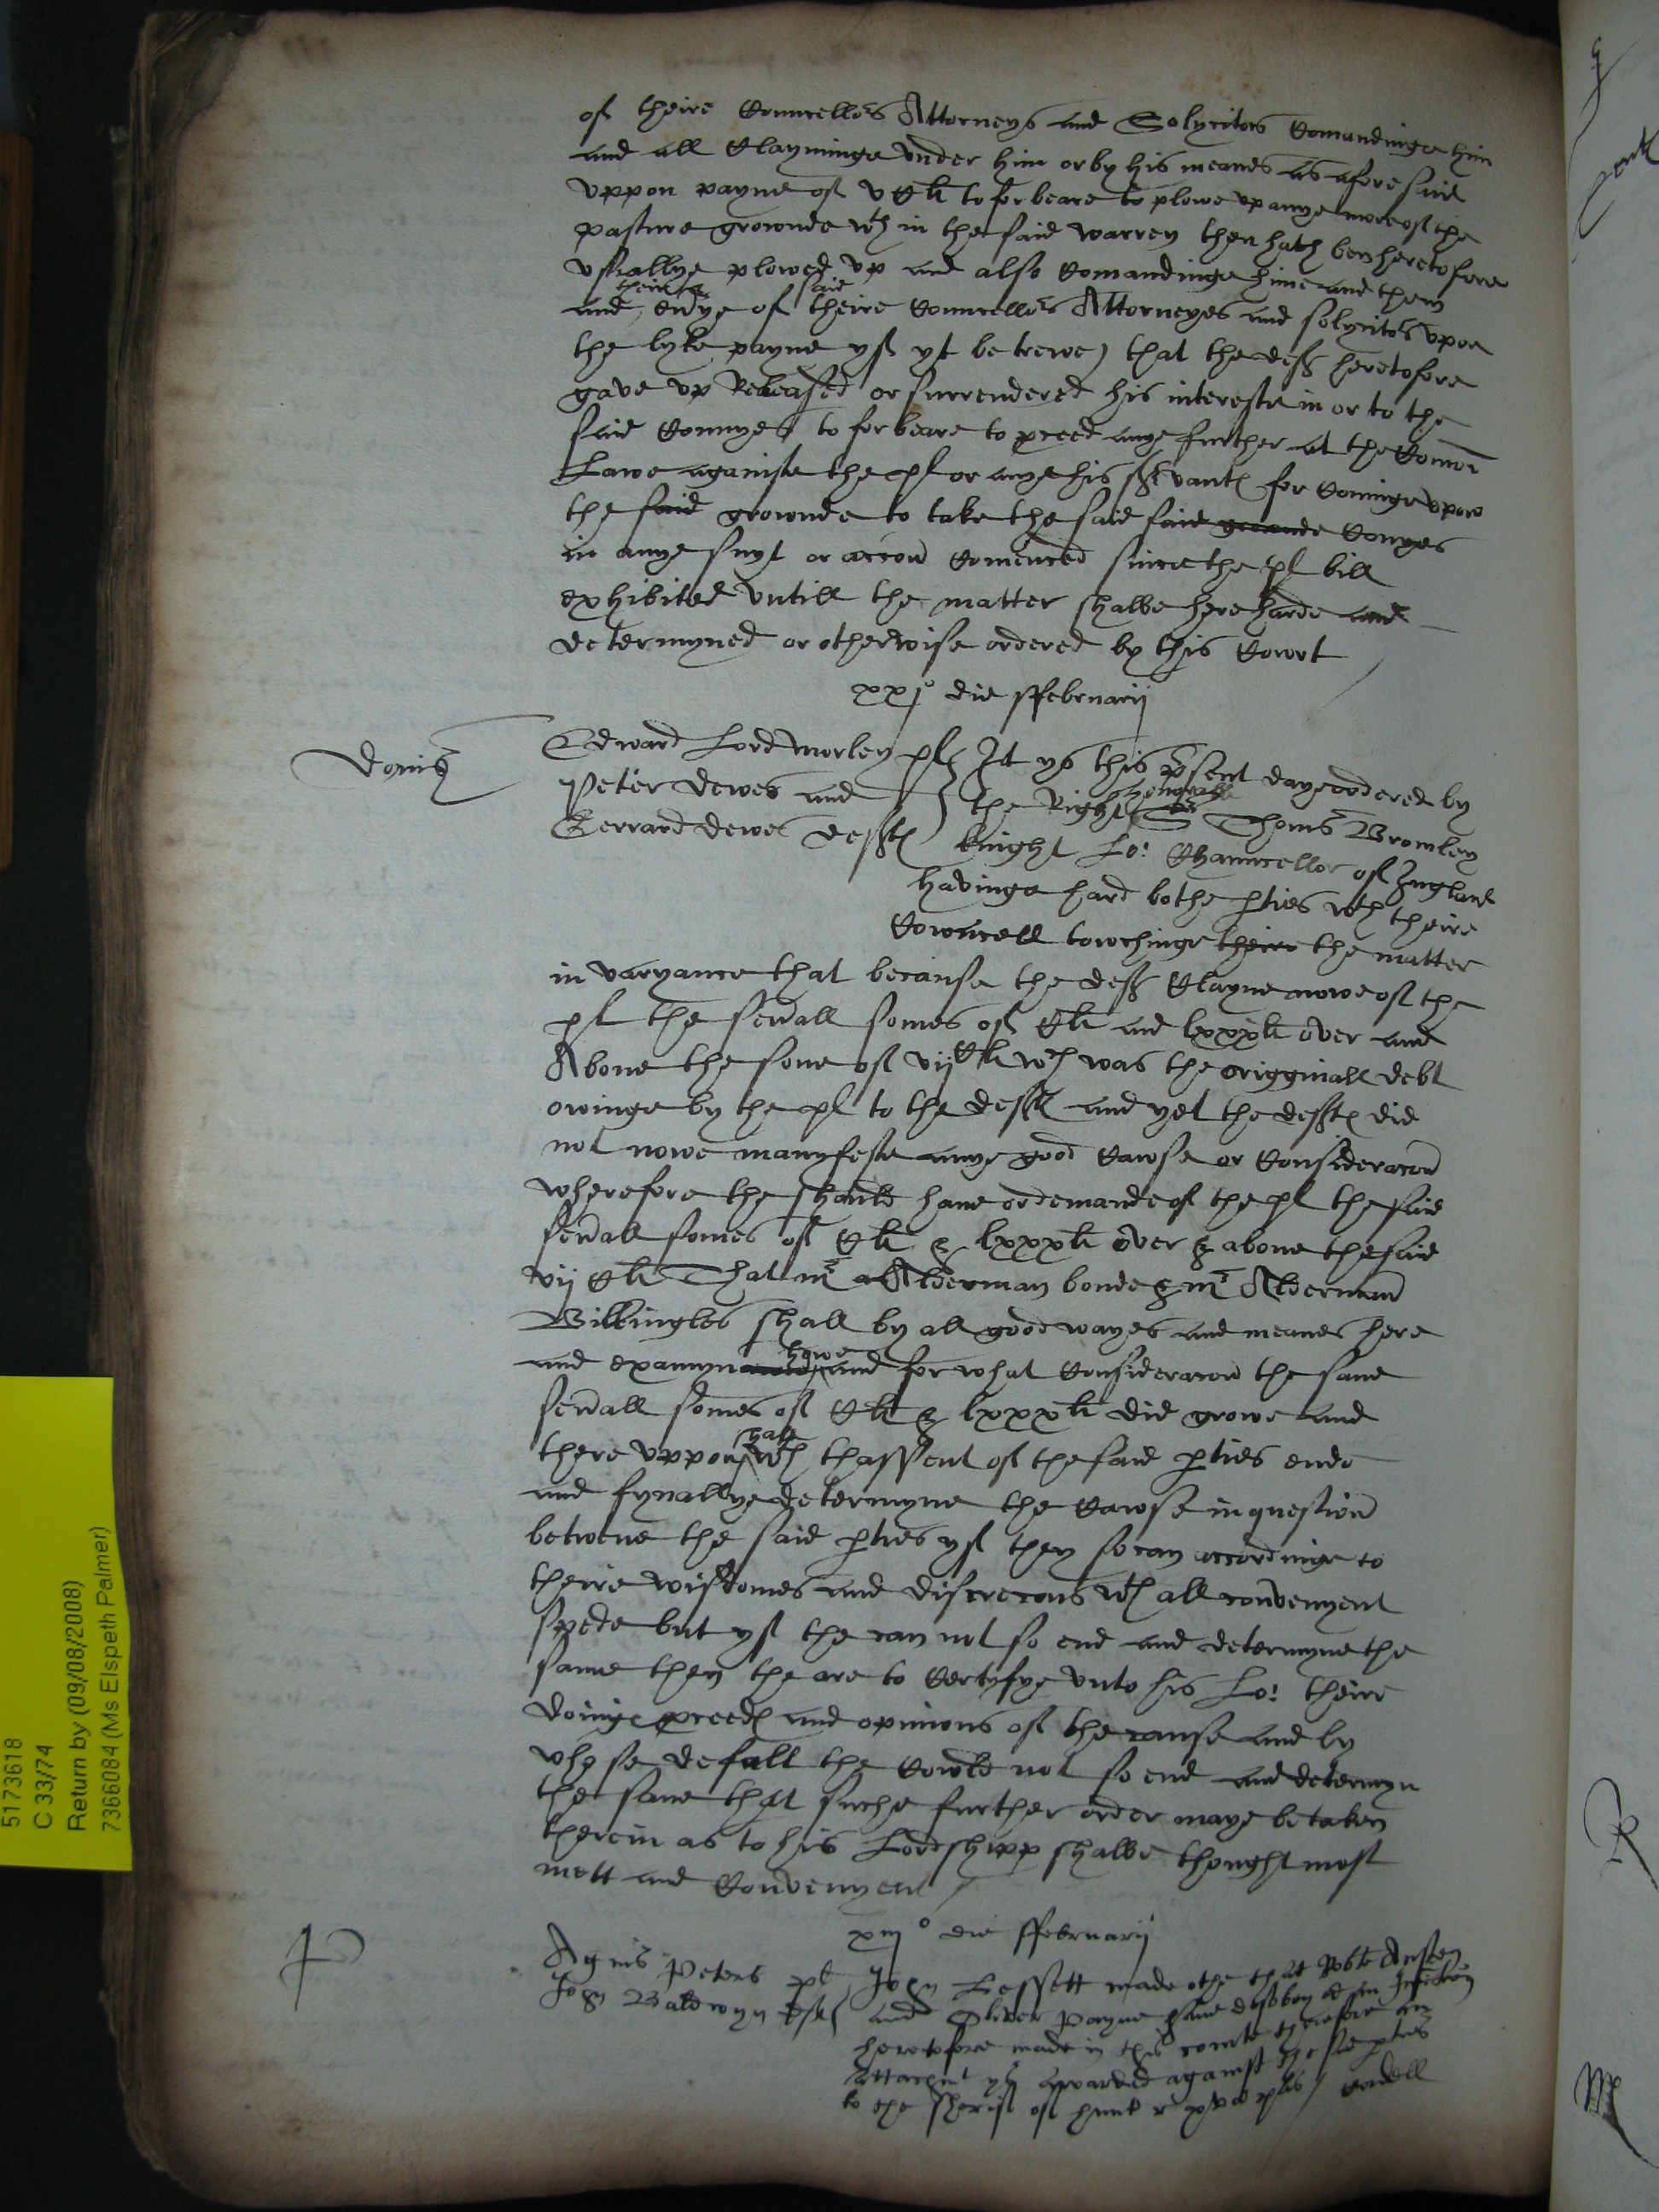 of theire Councellors Attorneys and Solycitors Comandinge him
and all Clayminge vnder him or by his meanes as aforesaid
vppon payne of v C li to forbeare to plowe vp anye more of the
pasture grownde wth in the said warren then hath ben heretofore
vsuallye plowed vp and also Comandinge hime and them
and theire & evye of theire said Councellors Attorneyes and solycitors vpon
the lyke payne yf yt be trewe that the deft heretofore
gave vp Released or surrendered his intereste in or to the
said Connyes to forbeare to pceed anye further at the Comon
Lawe againste the pl or anye his servantes for Cominge vpon
the said grownde to take the said said grounde Conyes
in anye suyt or accon Comenced since the pl bill
exhibited vntill the matter shalbe here harde and
determyned or otherwise ordered by this Court
xxjo die ffebruarij
Domis
Edward Lord Morley pl It ys this psent daye ordered by
Peter Dewes and the Right honorable Sr Thoms Bromley
Gerrard Dewes deftes knight Lo: Chauncellor of England
havinge hard bothe pties wth theire
Cowncell towchinge theire the matter
in varyance that because the deft Clayme nowe of the
pl the sevall somes of C li and lxxx li over and
Above the some of vij C li wch was the origginall debt
owinge by the pl to the deft and yet the deftes did
not nowe manyfeste anye good Cawse or Consideracon
wherefore the should have or demande of the pl the said
sevall somes of C li & lxxx li over & above the said
vij C li That mr Alderman bonde & mr Alderman
Billingles shall by all good wayes and meanes here
and examyn howe and for what Consideracon the same
sevall somes of C li & lxxx li did growe and
there vppon shall wth thassent of the said pties ende
and fynallye determyne the Cawse in question
betwene the said pties yf they so can accordinge to
theire wisdomes and discrecons wth all convenyent
spede but yf the can not so end and determyne the
same then the are to Certyfye vnto his Lo: theire
doinge pceedes and opinions of the cause and by
whose defalt the Could not so end and determyn
the same that suche further order maye be taken
therein as to his Lordshipp shalbe thought most
mett and Convenyent
die ffebruarij
P
Agnis Peters pl John Lessett made othe that Robte Austen
John Baldwyn deft and Oliver Payne have disobey an Iniuncon
heretofore made in this courte therefore an
attachmt ys awarded against the sd pties
to the Sherif of Cordell
5173618
C 33/74
Return by (09/08/2008)
7366084 (Ms Elspeth Palmer)